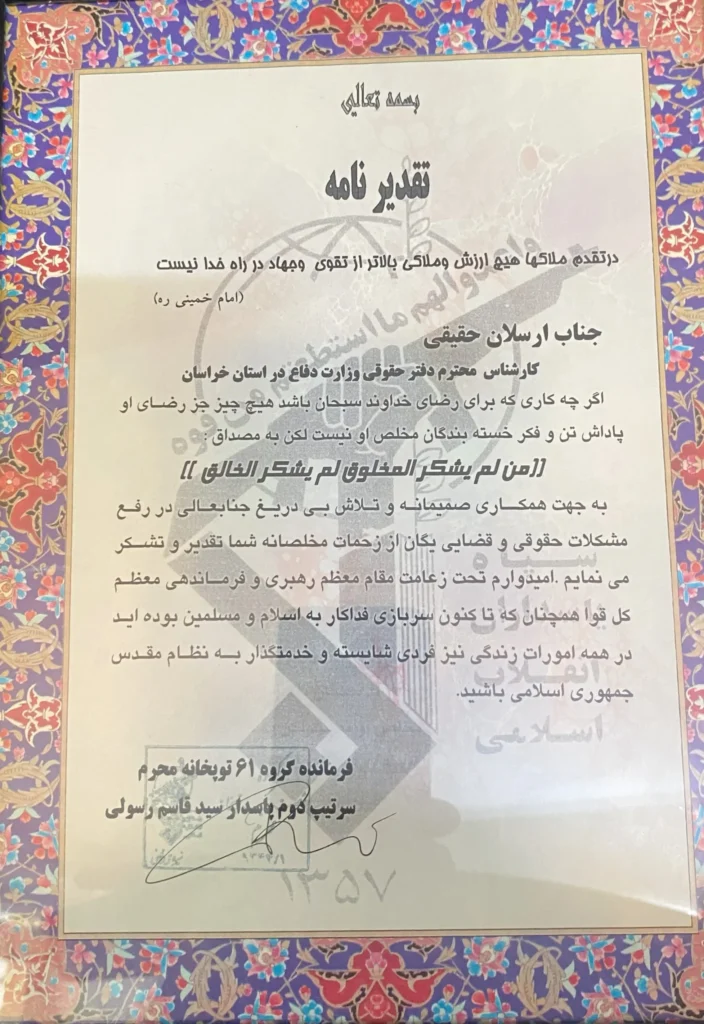 بسمه تعالی
تقدیر نامه
درتقدم ملاکها هیچ ارزش وملاکی بالاتر از تقوی وجهاد در راه خدا نیست
(امام خمینی ره)
جناب ارسلان حقیقی
کارشناس محترم دفتر حقوقی وزارت دفاع در استان خراسان
اگر چه کاری که برای رضای خداوند سبحان باشد هیچ چیز جز رضای او
پاداش تن و فکر خسته بندگان مخلص او نیست لکن به مصداق :
[[من لم یشکر المخلوق لم یشکر الخالق ]]
به جهت همکاری صمیمانه و تلاش بی دریغ جنابعالی در رفع
مشکلات حقوقی و قضایی یگان از زحمات مخلصانه شما تقدیر و تشکر
می نمایم .امیدوارم تحت زعامت مقام معظم رهبری و فرماندهی معظم
کل قوا همچنان که تا کنون سربازی فداکار به اسلام و مسلمین بوده اید
در همه امورات زندگی نیز فردی شایسته و خدمتگذار به نظام مقدس
جمهوری اسلامی باشید.
فرمانده گروه ۶۱ توپخانه محرم
سرتیپ دوم پاسدار سید قاسم رسولی
واعدوا لهم ما استطعتم من قوه
سپاه
پاسداران
انقلاب
اسلامی
۱۳۵۷